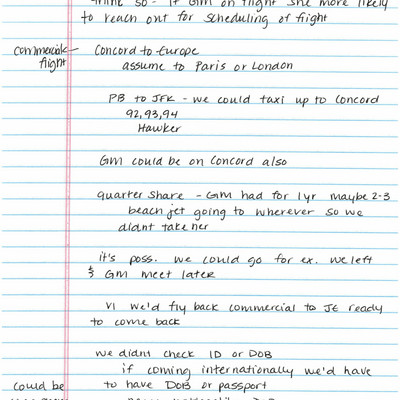 think so - if GM on flight she more likely
to reach out for scheduling of flight
commercial flight - Concord to Europe
assume to Paris or London
PB to JFK - we could taxi up to Concord
92,93,94
Hawker
GM could be on Concord also
quarter share - GM had for 1yr maybe 2-3
beach jet going to wherever so we
didnt take her
it's poss. we could go for ex. we left
& GM meet later
VI we'd fly back commercial to JE ready
to come back
we didnt check ID or DOB
if coming internationally we'd have
could be to have DOB or passport